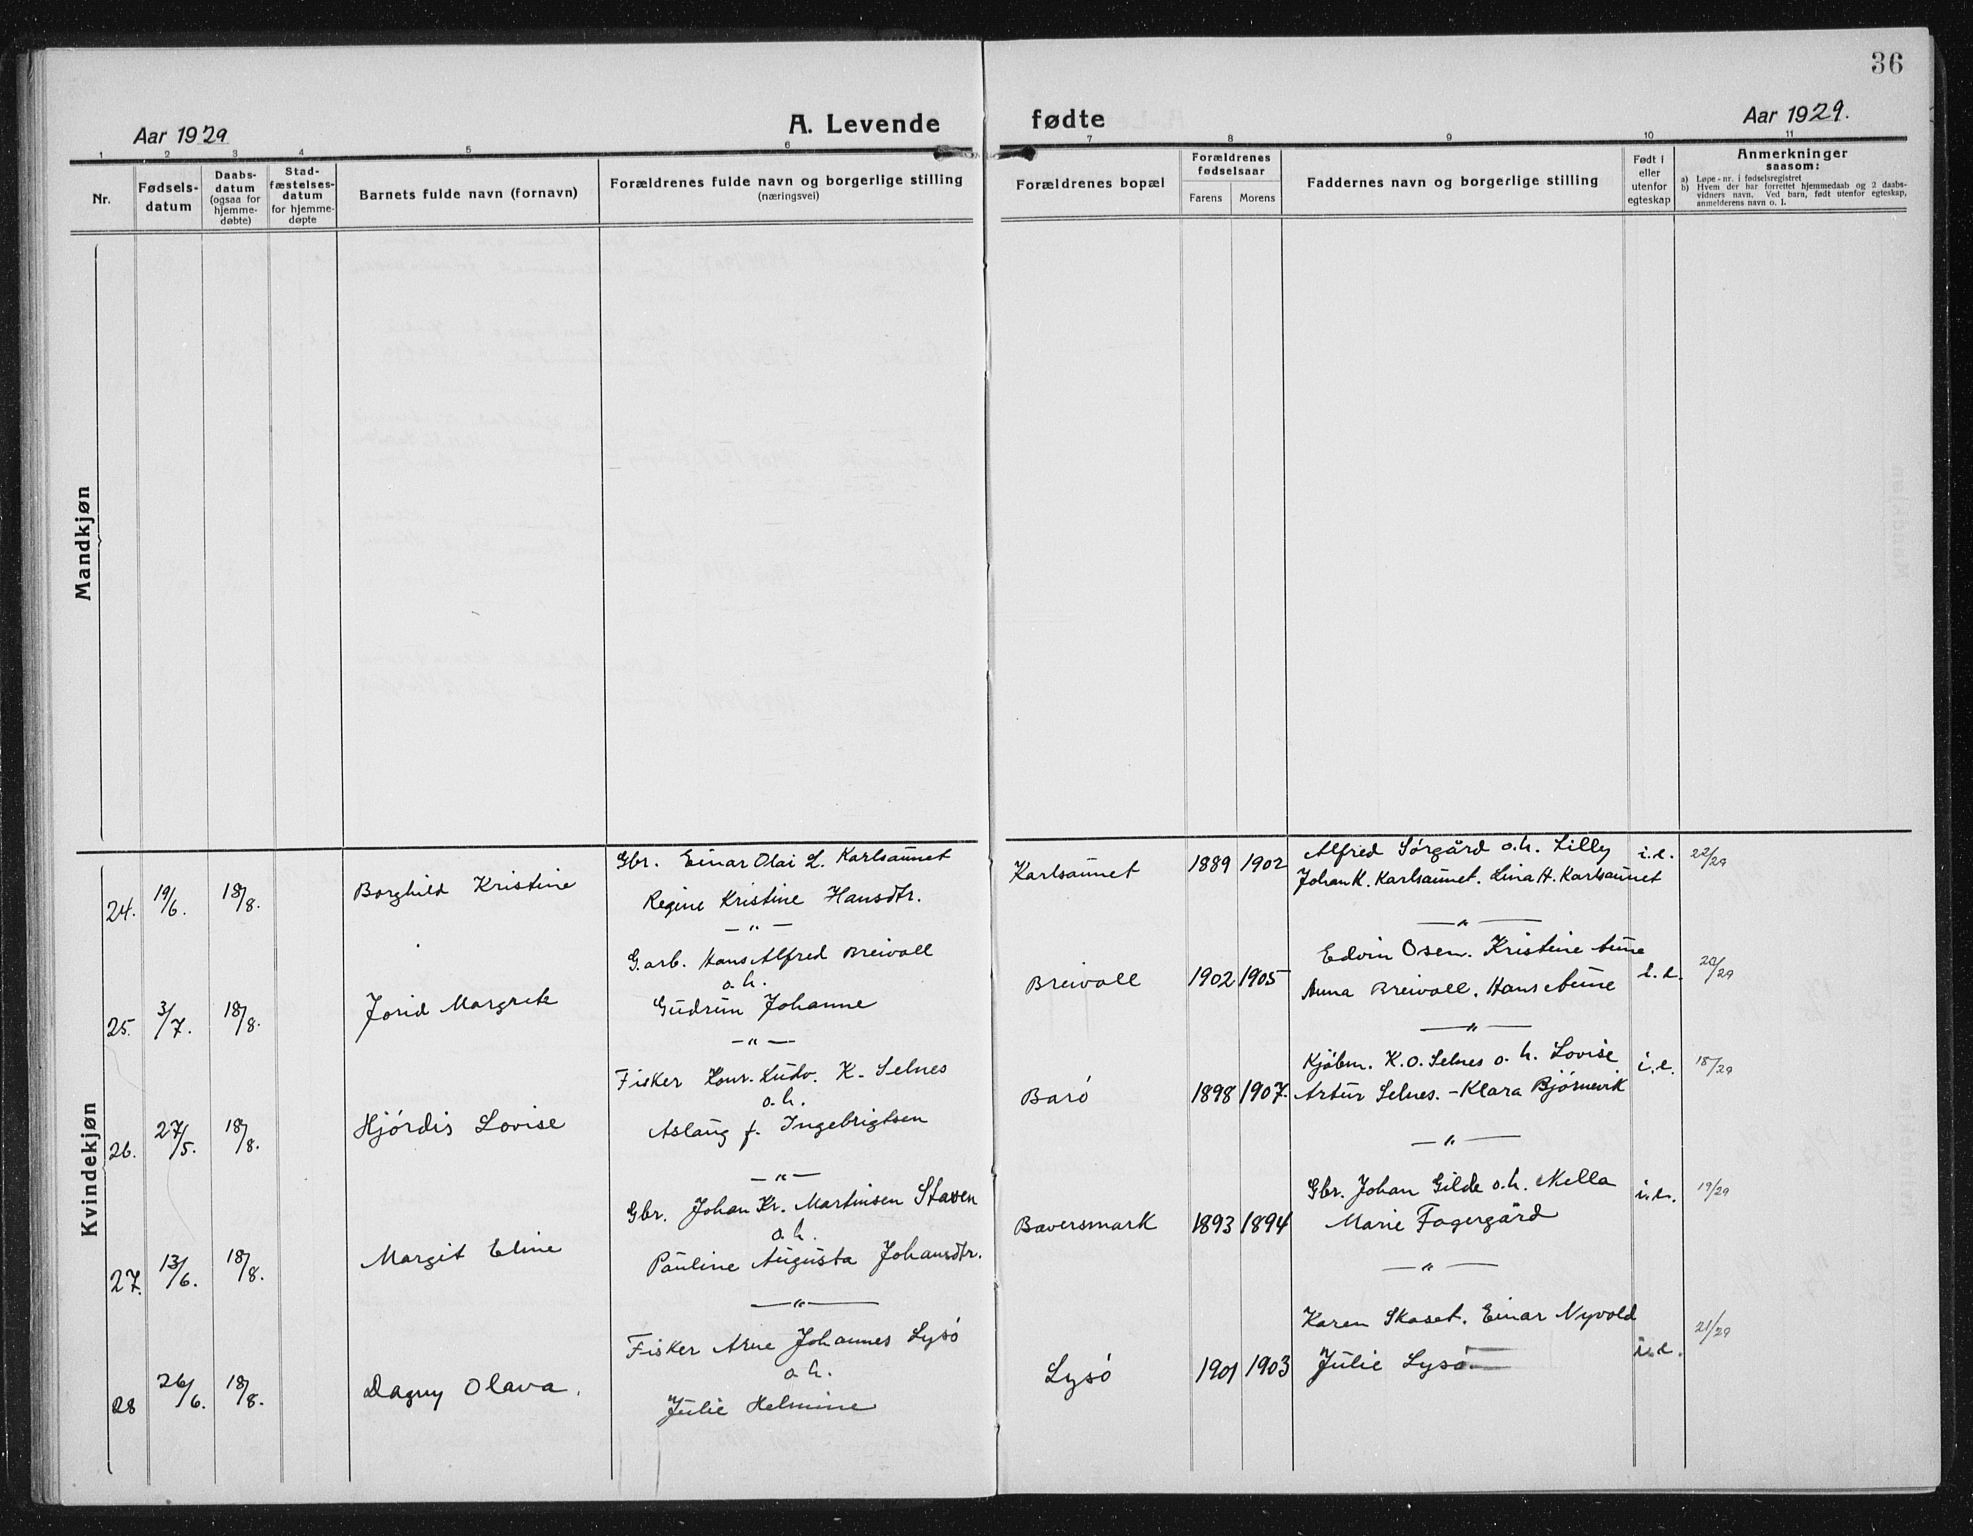 36
Aar 1929
A. Levende fødte
Aar 1929.
1 2 3 4 5 6 7 8 9 10 11
Nr.
Fødsels-
datum
Daabs-
datum
(ogsaa for
hjemme-
døbte)
Stad-
fæstelses-
datum
for hjemme-
døpte
Barnets fulde navn (fornavn)
Forældrenes fulde navn og borgerlige stilling
(næringsvei)
Forældrenes bopæl
Forældrenes
fødselsaar
Farens Morens
Faddernes navn og borgerlige stilling
Født i
eller
utenfor
egteskap
Anmerkninger
saasom:
a) Løpe-nr. i fødselsregistret
b) Hvem der har forrettet hjemmedaab og 2 daabs-
vidners navn. Ved barn, født utenfor egteskap,
anmelderens navn o. l.
Mandkjøn
Kvindekjøn
24. 19/6. 18/8. Borghild Kristine
Gbr. Einar Olai L. Karlsaunet
Regine Kristine Hansdtr.
—"—
Karlsaunet 1889 1902
Alfred Sørgård o.h. Lilly
Johan K. Karlsaunet. Lina H. Karlsaunet
—"—
i.e. 22/29
25. 3/7. 18/8. Jorid Margrete
G.arb. Hans Alfred Breivoll
o.h.
Gudrun Johanne
—"—
Breivoll 1902 1905
Edvin Osen. Kristine Aune
Anna Breivoll. Hans Aune
—"—
i.e. 20/29
26. 27/5. 18/8. Hjördis Lovise
Fisker Konr. Ludv. K. Selnes
o.h.
Aslaug f. Ingebrigtsen
—"—
Barö 1898 1907.
Kjøbm. K.O. Selnes o.h. Lovise
Artur Selnes. - Klara Bjørnevik
—"—
i.e. 18/29
27. 13/6. 18/8. Margit Eline
Gbr. Johan Kr. Martinsen Staven
o.h.
Pauline Augusta Johansdtr.
—"—
Bæversmark 1893 1894
Gbr. Johan Gilde o.h. Mella
Marie Fagergård
—"—
i.e. 19/29
28 26/6. 18/8. Dagny Olava.
Fisker Arne Johannes Lysö
o.h.
Julie Helmine
Lysö 1901 1903
Karen Skaset. Einar Nyvold
Julie Lysö
i.e. 21/29